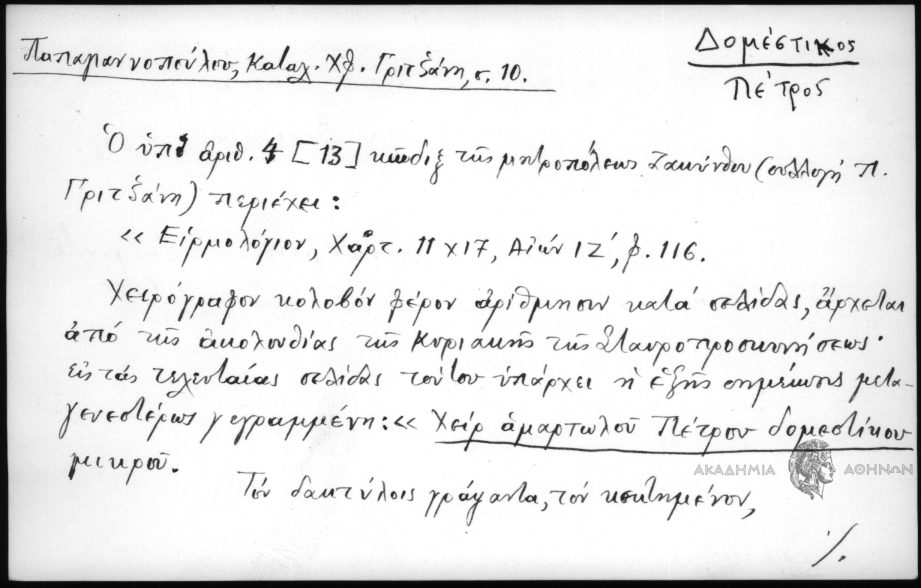 Δομέστικος
Πέτρος
Παπαγιαννοπούλου, Καταλ. Χφ. Γριτσάνη, σ. 10.
Ὁ ὑπ' ἀριθ. 4 [13] κῶδιξ τῆς μητροπόλεως Ζακύνθου (συλλογή Π.
Γριτσάνη) περιέχει:
«Εἱρμολόγιον, Χάρτ. 11 χ 17, Αἰών ΙΖ', φ. 116.
Χειρόγραφον κολοβόν φέρον ἀρίθμησιν κατά σελίδας, ἄρχεται
ἀπό τῆς ἀκολουθίας τῆς Κυριακῆς τῆς Σταυροπροσκυνήσεως·
εἰς τάς τελευταίας σελίδας τούτου ὑπάρχει ἡ ἑξῆς σημείωσις μετα-
γενεστέρως γεγραμμένη: « Χείρ ἁμαρτωλοῦ Πέτρου δομεστίκου
μικροῦ.
Τόν δακτύλοις γράψαντα, τόν κεκτημένον,
./.
ΑΚΑΔΗΜΙΑ ΑΘΗΝΩΝ